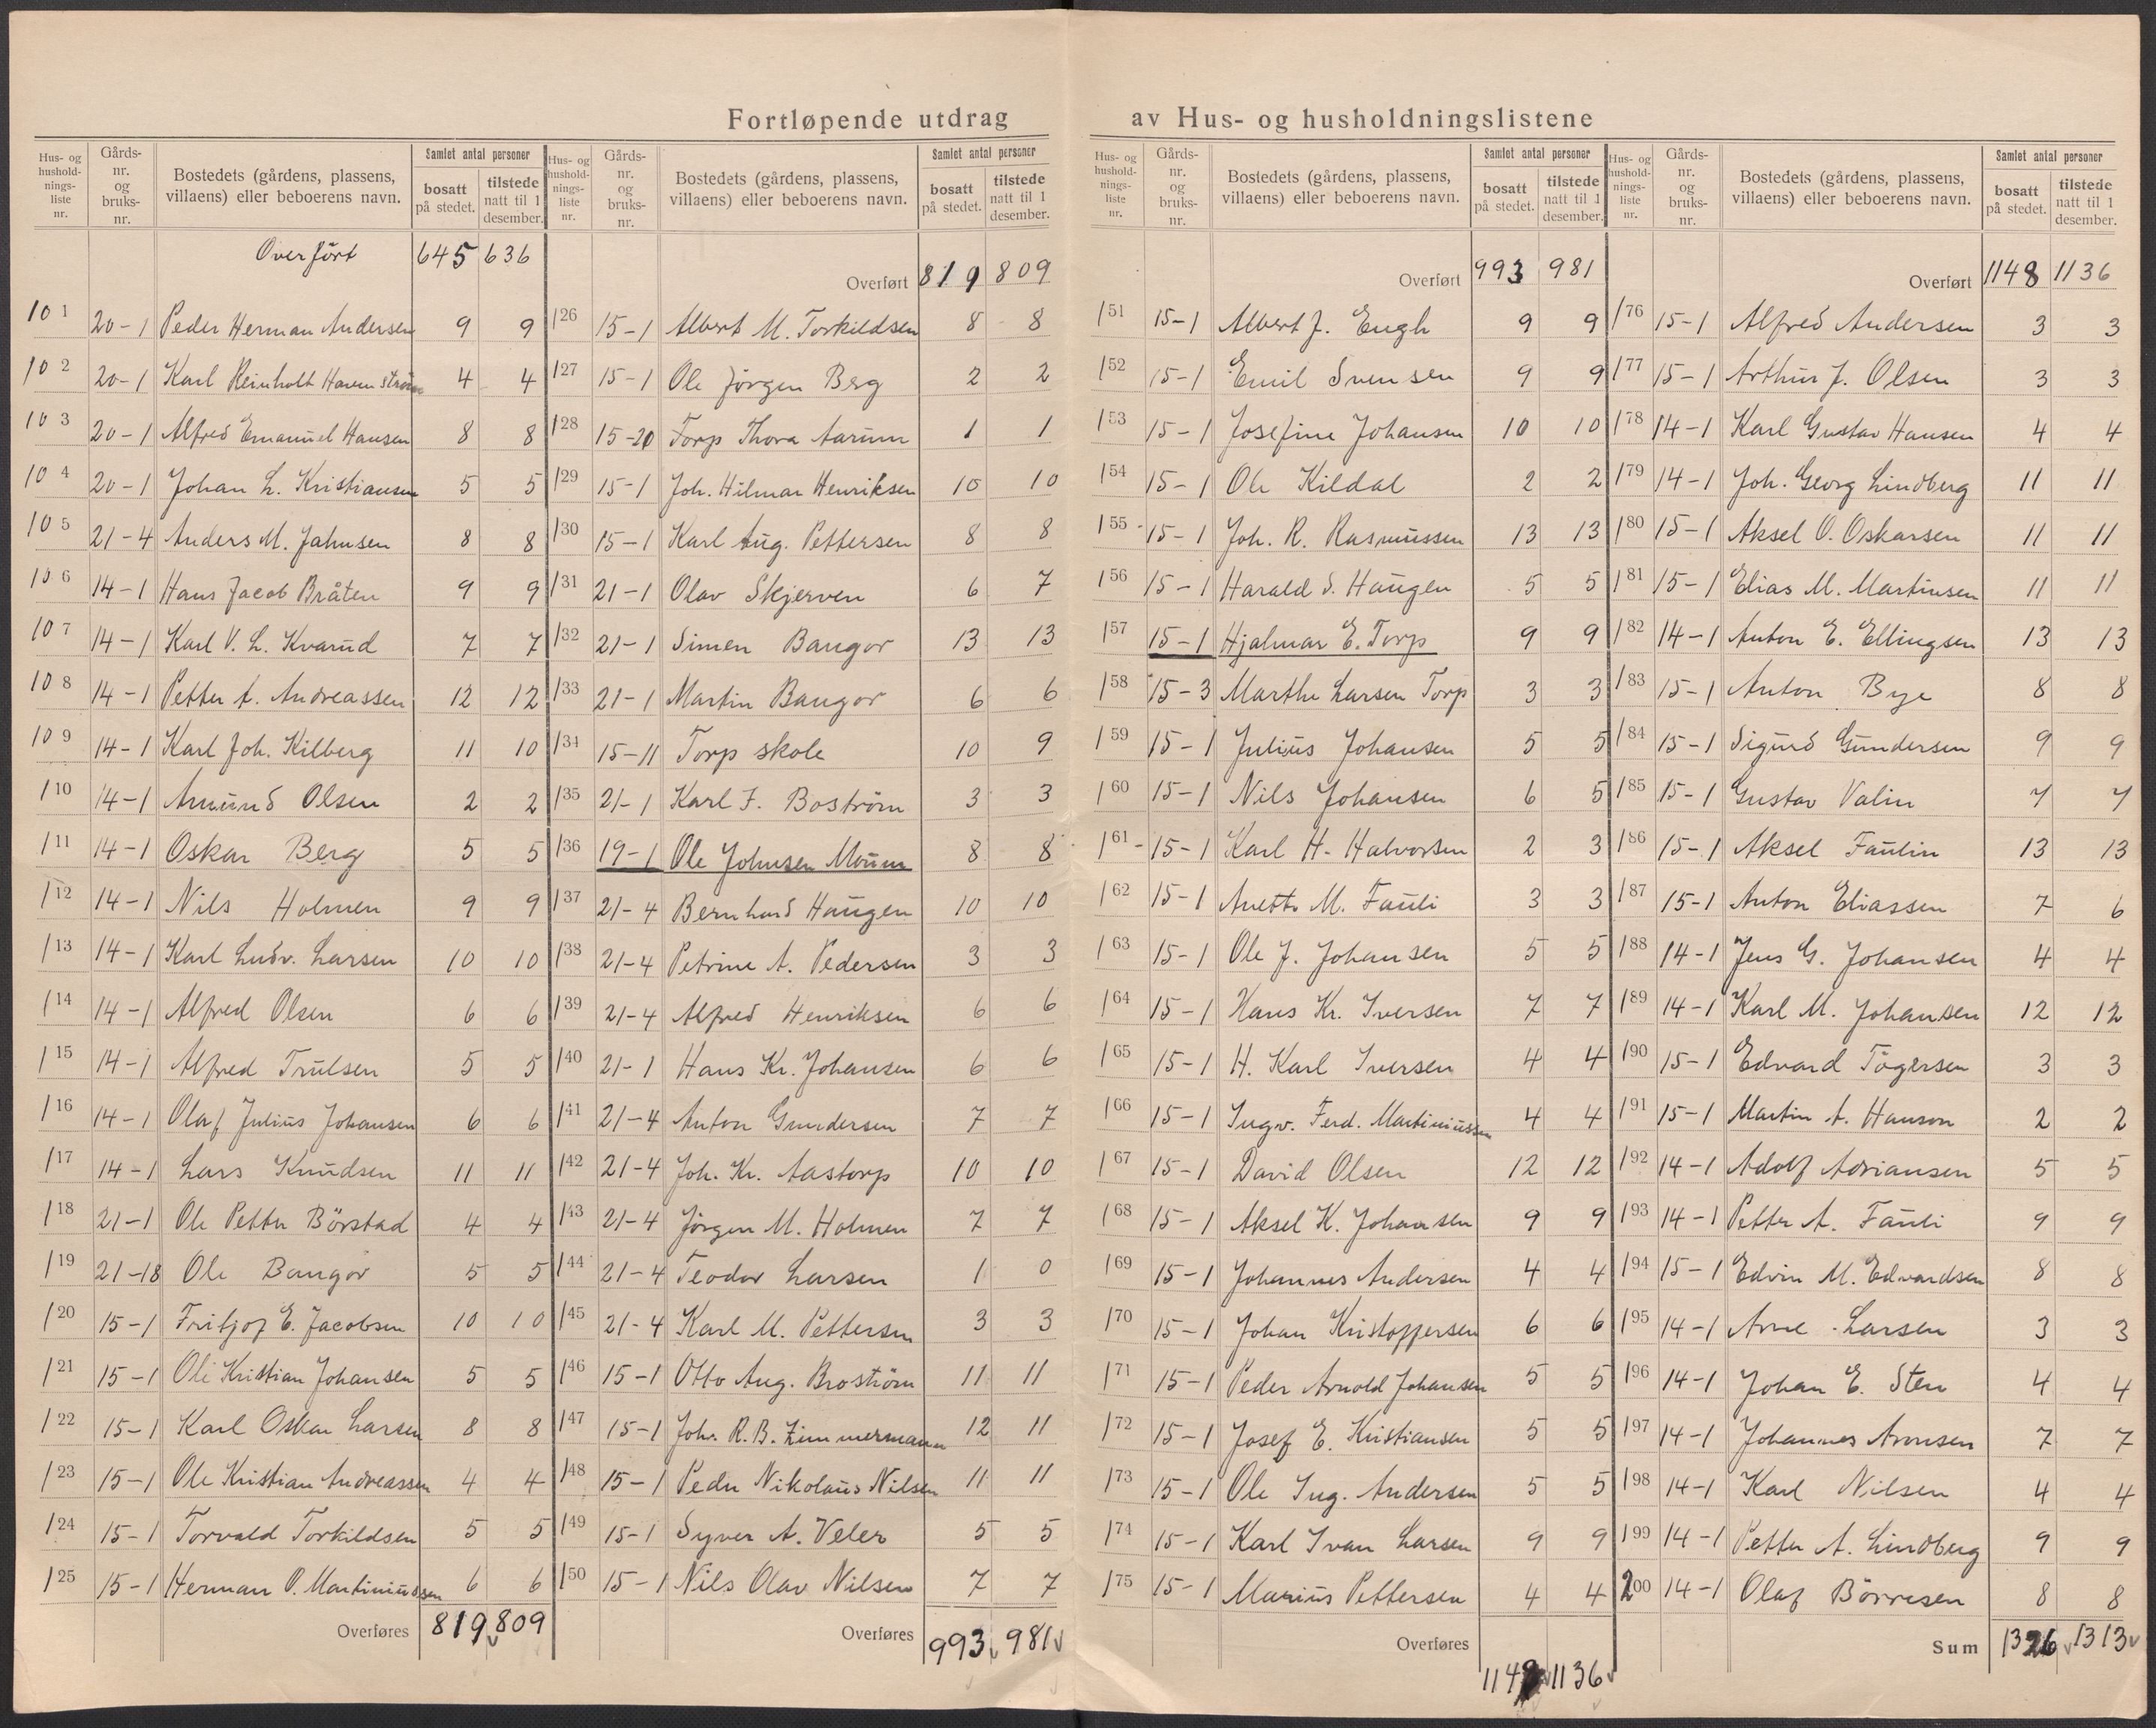 Fortløpende utdrag av Hus- og husholdningslistene
Hus- og hushold-nings-liste nr. Gårds-nr. og bruks-nr. Bostedets (gårdens, plassens, villaens) eller beboerens navn. Samlet antal personer bosatt på stedet. tilstede natt til 1 desember.
Overført 645 636
101 20-1 Peder Herman Andersen 9 9
102 20-1 Karl Reinholt Havnstrøm 4 4
103 20-1 Alfred Emanuel Hansen 8 8
104 20-1 Johan L. Kristiansen 5 5
105 21-4 Anders M. Jahnsen 8 8
106 14-1 Hans Jacob Bråten 9 9
107 14-1 Karl V. L. Kvarud 7 7
108 14-1 Petter A. Andreassen 12 12
109 14-1 Karl Joh. Kilberg 11 10
110 14-1 Amund Olsen 2 2
111 14-1 Oskar Berg 5 5
112 14-1 Nils Holmen 9 9
113 14-1 Karl Ludv. Larsen 10 10
114 14-1 Alfred Olsen 6 6
115 14-1 Alfred Trulsen 5 5
116 14-1 Olaf Julius Johansen 6 6
117 14-1 Lars Knudsen 11 11
118 21-1 Ole Petter Börstad 4 4
119 21-18 Ole Bangor 5 5
120 15-1 Fritjof E. Jacobsen 10 10
121 15-1 Ole Kristian Johansen 5 5
122 15-1 Karl Oskar Larsen 8 8
123 15-1 Ole Kristian Andreassen 4 4
124 15-1 Torvald Torkildsen 5 5
125 15-1 Herman O. Martiniussen 6 6
Overføres 819 809
Hus- og hushold-nings-liste nr. Gårds-nr. og bruks-nr. Bostedets (gårdens, plassens, villaens) eller beboerens navn. Samlet antal personer bosatt på stedet. tilstede natt til 1 desember.
Overført 819 809
126 15-1 Albert M. Torkildsen 8 8
127 15-1 Ole Jörgen Berg 2 2
128 15-20 Torp Thora Aarum 1 1
129 15-1 Joh. Hilmar Henriksen 10 10
130 15-1 Karl Aug. Pettersen 8 8
131 21-1 Olav Skjerven 6 7
132 21-1 Simen Bangor 13 13
133 21-1 Martin Bangor 6 6
134 15-11 Torp skole 10 9
135 21-1 Karl F. Boström 3 3
136 19-1 Ole Johnsen Moum 8 8
137 21-4 Bernhard Haugen 10 10
138 21-4 Petrine A. Pedersen 3 3
139 21-4 Alfred Henriksen 6 6
140 21-1 Hans Kr. Johansen 6 6
141 21-4 Anton Gundersen 7 7
142 21-4 Joh. Kr. Aastorp 10 10
143 21-4 Jörgen M. Holmen 7 7
144 21-4 Teodor Larsen 1 0
145 21-4 Karl M. Pettersen 3 3
146 15-1 Otto Aug. Broström 11 11
147 15-1 Joh. R. B. Zimmermann 12 11
148 15-1 Peder Nikolaus Nilsen 11 11
149 15-1 Syver A. Veler 5 5
150 15-1 Nils Olav Nilsen 7 7
Overføres 993 981
Hus- og hushold-nings-liste nr. Gårds-nr. og bruks-nr. Bostedets (gårdens, plassens, villaens) eller beboerens navn. Samlet antal personer bosatt på stedet. tilstede natt til 1 desember.
Overført 993 981
151 15-1 Albert J. Engh 9 9
152 15-1 Emil Svensen 9 9
153 15-1 Josefine Johansen 10 10
154 15-1 Ole Kildal 2 2
155 15-1 Joh. R. Rasmussen 13 13
156 15-1 Harald S. Haugen 5 5
157 15-1 Hjalmar E. Torp 9 9
158 15-3 Marthe Larsen Torp 3 3
159 15-1 Julius Johansen 5 5
160 15-1 Nils Johansen 6 5
161 15-1 Karl H. Halvorsen 2 3
162 15-1 Anette M. Fauli 3 3
163 15-1 Ole J. Johansen 5 5
164 15-1 Hans Kr. Iversen 7 7
165 15-1 H. Karl Iversen 4 4
166 15-1 Ingv. Ferd. Martiniussen 4 4
167 15-1 David Olsen 12 12
168 15-1 Aksel K. Johansen 9 9
169 15-1 Johannes Andersen 4 4
170 15-1 Johan Kristoffersen 6 6
171 15-1 Peder Arnold Johansen 5 5
172 15-1 Josef E. Kristiansen 5 5
173 15-1 Ole Ing. Andersen 5 5
174 15-1 Karl Ivan Larsen 9 9
175 15-1 Marius Pettersen 4 4
Overføres 1148 1136
Hus- og hushold-nings-liste nr. Gårds-nr. og bruks-nr. Bostedets (gårdens, plassens, villaens) eller beboerens navn. Samlet antal personer bosatt på stedet. tilstede natt til 1 desember.
Overført 1148 1136
176 15-1 Alfred Andersen 3 3
177 15-1 Arthur J. Olsen 3 3
178 14-1 Karl Gustav Hansen 4 4
179 14-1 Joh. Georg Lindberg 11 11
180 15-1 Aksel O. Oskarsen 11 11
181 15-1 Elias M. Martinsen 11 11
182 14-1 Anton E. Ellingsen 13 13
183 15-1 Anton Bye 8 8
184 15-1 Sigurd Gundersen 9 9
185 15-1 Gustav Valin 4 4
186 15-1 Aksel Faulin 13 13
187 15-1 Anton Eliassen 7 6
188 14-1 Jens G. Johansen 4 4
189 14-1 Karl M. Johansen 12 12
190 15-1 Edvard Tögersen 3 3
191 15-1 Martin A. Hanson 2 2
192 14-1 Adolf Adriansen 5 5
193 14-1 Petter A. Fauli 9 9
194 15-1 Edvin M. Edvardsen 8 8
195 14-1 Arne Larsen 3 3
196 14-1 Johan E. Sten 4 4
197 14-1 Johannes Aronsen 7 7
198 14-1 Karl Nilsen 4 4
199 14-1 Petter A. Lindberg 9 9
200 14-1 Olaf Börresen 8 8
Sum 1326 1313